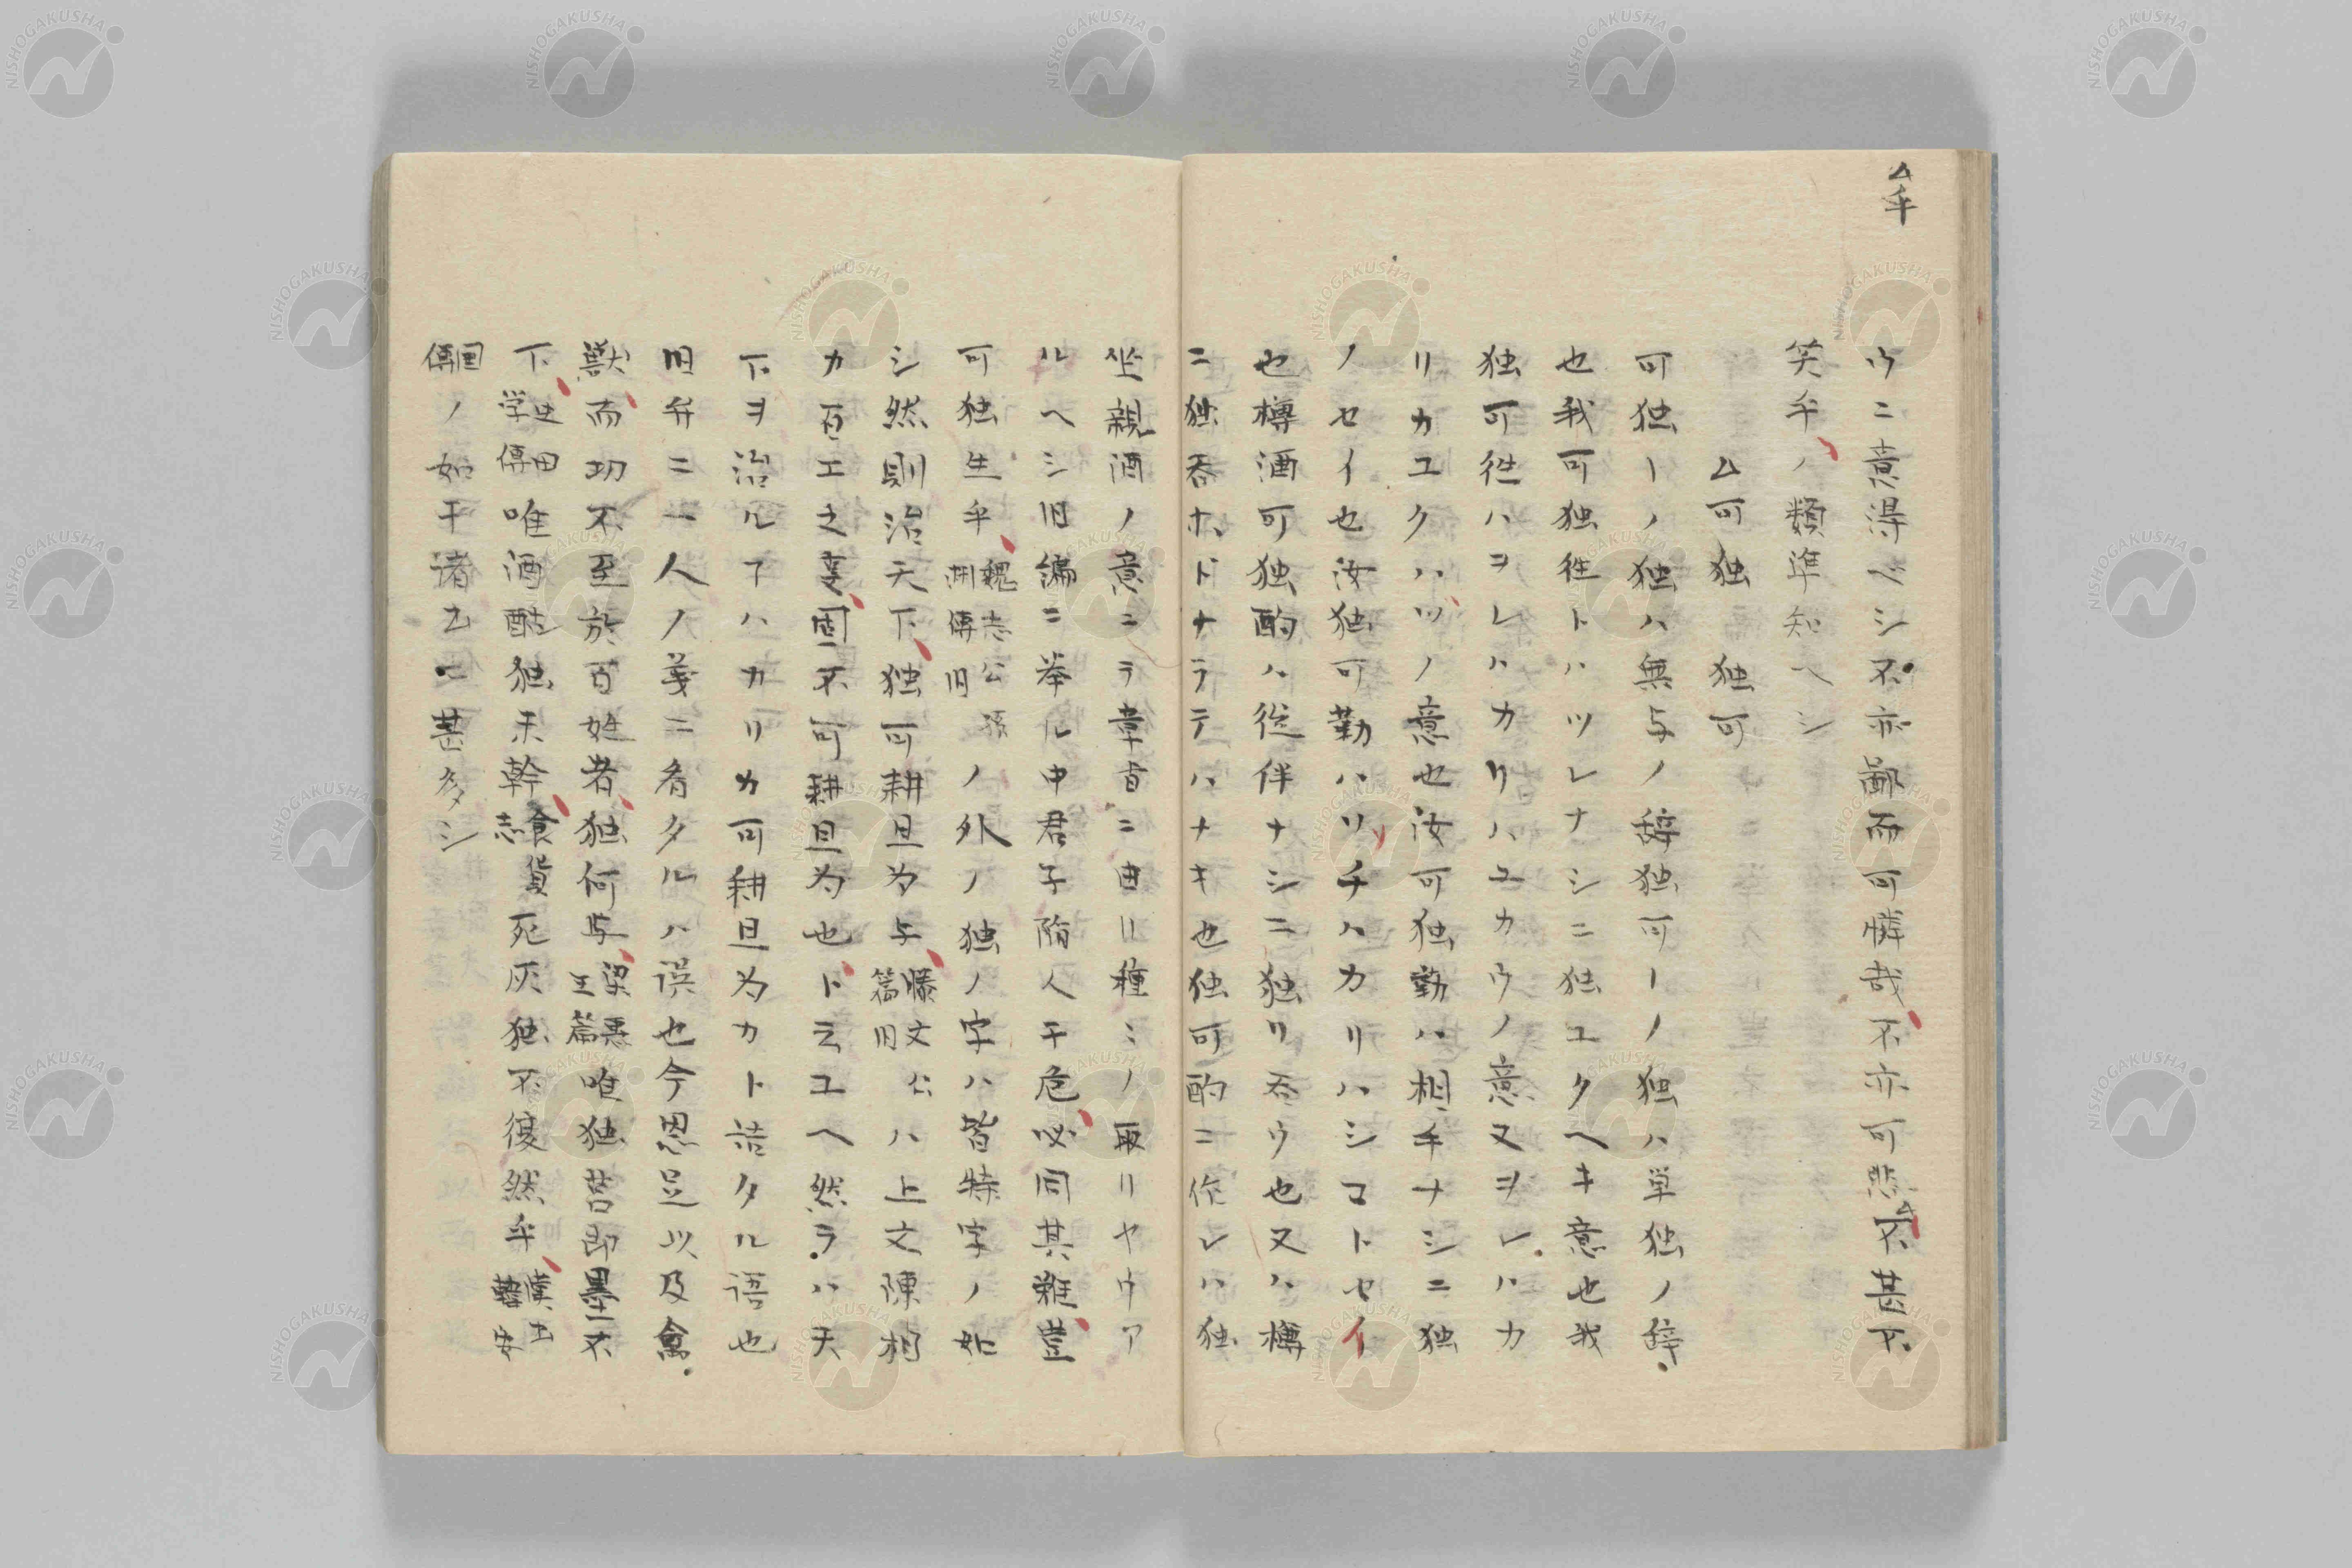 △乎
ウニ意得ベシ不亦鄙而可憐哉不亦可悲△不甚可
笑乎ノ類準知ヘシ
△可独 独可
可独ーノ独ハ無与ノ辞独可ーノ独ハ単独ノ辞
也我可独徃トハツレナシニ独ユクヘキ意也我
独可徃ハヲレハカリハユカウノ意又ヲレハカ
リカユクハツノ意也汝可独勤ハ相手ナシニ独
ノセイ也汝独可勤ハソチハカリハシコトセイ
也樽酒可独酌ハ従伴ナシニ独リ呑ウ也又ハ樽
ニ独呑ホドナラテハナキ也独可酌ニ作レハ独
坐親酒ノ意ニラ章旨ニ由リ種ミノ取リヤウア
ルヘシ旧編ニ挙ル中君子陥人于危必同其難豈
可独生乎魏志公孫渕傳旧ノ外ノ独ノ字ハ皆特字ノ如
シ然則治天下独可耕且为与滕文公篇旧ハ上文陳相
カ百工之事固不可耕且为也ト云ユヘ然ラハ天
下ヲ治ルヿハカリカ可耕且为カト詰タル语也
旧弁ニ一人ノ義ニ看タルハ误也今恩足以及禽
獣而功不至於百姓者独何与梁惠王篇唯独莒即墨不
下史田学傳唯酒酤独未幹食貨志死灰独不復然乎漢韓安
国傳ノ如干诸書ニ甚多シ